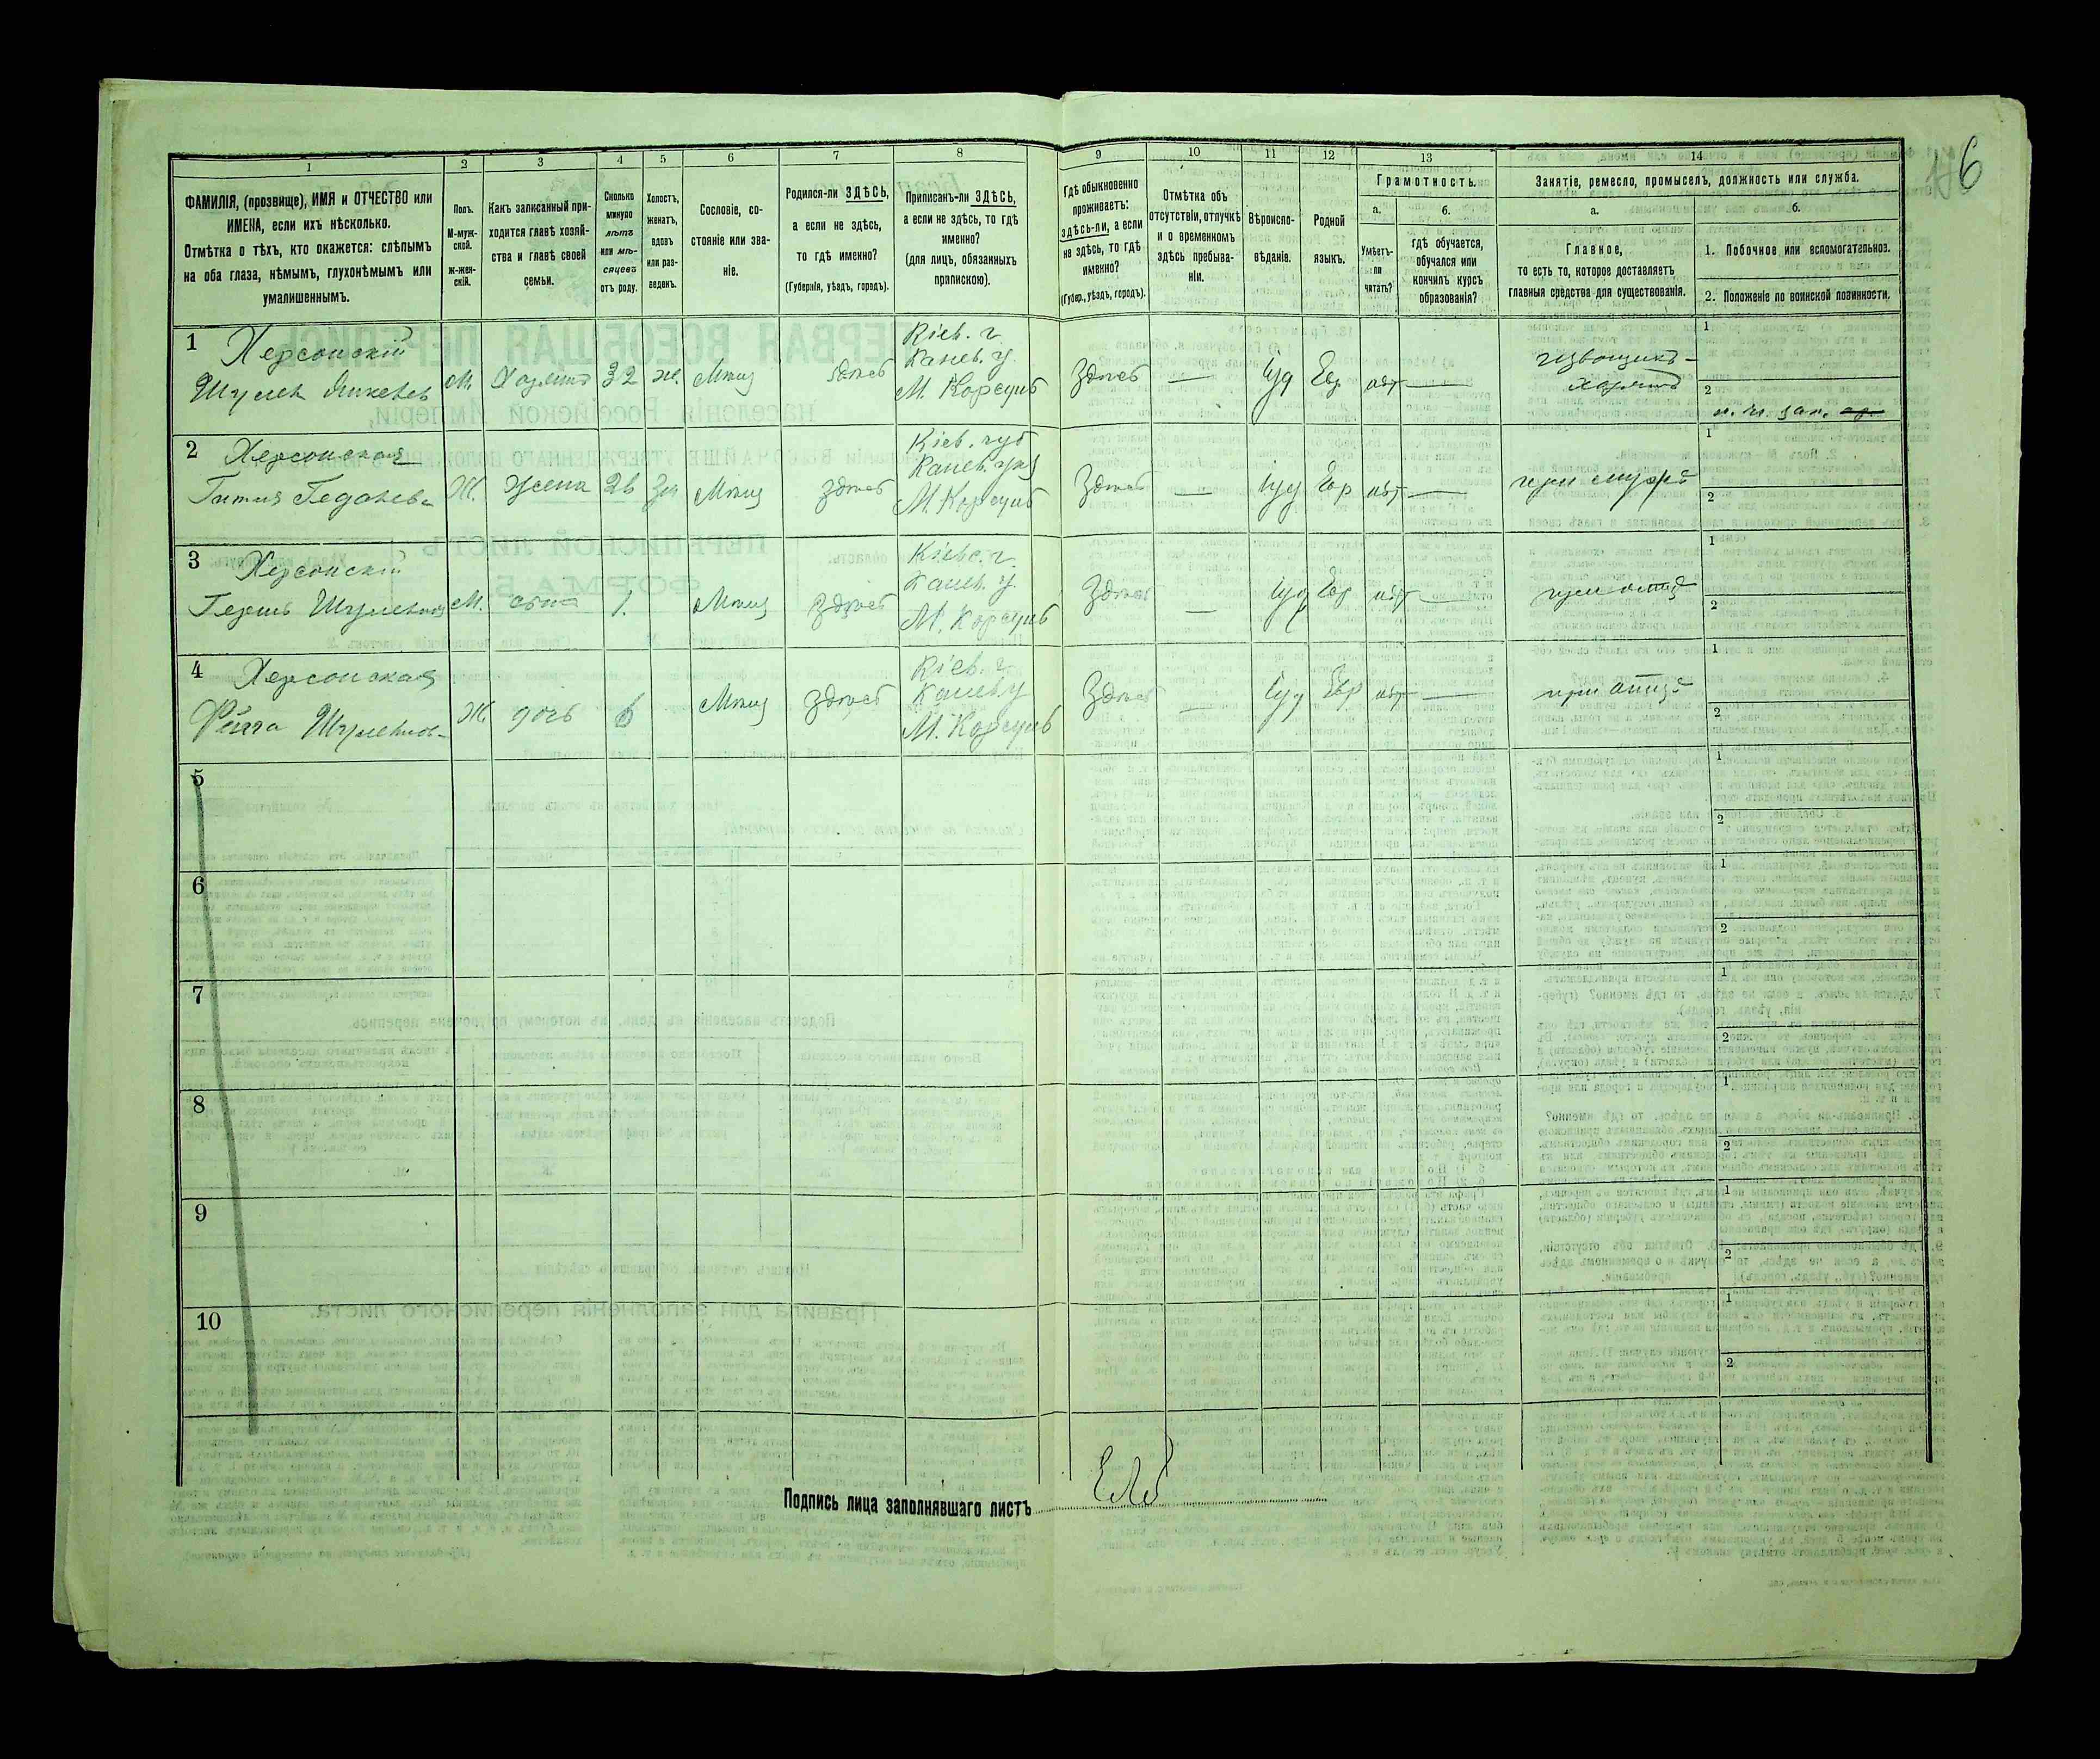 176
1
2
3
4
5
6
7
8
9
10
11
12
13
14
ФАМИЛІЯ, (прозвище), ИМЯ и ОТЧЕСТВО или
ИМЕНА, если ихъ нѣсколько.
Отмѣтка о тѣхъ, кто окажется: слѣпымъ
на оба глаза, нѣмымъ, глухонѣмымъ или
умалишеннымъ.
Полъ.
М-муж-
ской.
ж-жен-
скій.
Какъ записанный при-
ходится главѣ хозяй-
ства и главѣ своей
семьи.
Сколько
минуло
лѣтъ
или мѣ-
сяцевъ
отъ роду.
Холостъ,
женатъ,
вдовъ
или раз-
веденъ.
Сословіе, со-
стояніе или зва-
ніе.
Родился-ли ЗДѢСЬ,
а если не здѣсь,
то гдѣ именно?
(Губернія, уѣздъ, городъ).
Приписанъ-ли ЗДѢСЬ,
а если не здѣсь, то гдѣ
именно?
(для лицъ, обязанныхъ
припискою).
Гдѣ обыкновенно
проживаетъ:
здѣсь-ли, а если
не здѣсь, то гдѣ
именно?
(Губер., уѣздъ, городъ).
Отмѣтка объ
отсутствіи, отлучкѣ
и о временномъ
здѣсь пребыва-
ніи.
Вѣроиспо-
вѣданіе.
Родной
языкъ.
Грамотность.
а.
Умѣетъ-
ли
читать?
б.
гдѣ обучается,
обучался или
кончилъ курсъ
образованія?
Занятіе, ремесло, промыселъ, должность или служба.
а.
Главное,
то есть то, которое доставляетъ
главныя средства для существованія.
б.
1. Побочное или вспомогательное.
2. Положеніе по воинской повинности.
1
Херсонскій
Шулек
М.
Хозяинъ
32
ж.
Мѣщ
здѣсь
Кіев. г.
Канев. у.
М. Корсунь
Здѣсь
—
Іуд
Евр
нѣт —
извощикъ —
хозяинъ
1
2
2
Херсонская
Ж.
жена
26
Мѣщ
здѣсь
Кіев. губ
Канев. уѣз
М. Корсунь
Здѣсь
—
Іуд
Евр
нѣт —
при мужѣ
1
2
3
Херсонскій
Гершъ
М.
сынъ
1.
Мѣщ
здѣсь
Кіевс. г.
Канев. у
М. Корсунь
Здѣсь
—
Іуд
Евр
нѣт —
при отцѣ
1
2
4
Херсонская
Фейга
Ж.
дочь
6
Мѣщ
здѣсь
Кіев. г.
Канев у
М. Корсунь
Здѣсь
—
Іуд
Евр
нѣт —
при отцѣ
1
2
5
1
2
6
1
2
7
1
2
8
1
2
9
1
2
10
1
2
Подпись лица заполнявшаго листъ